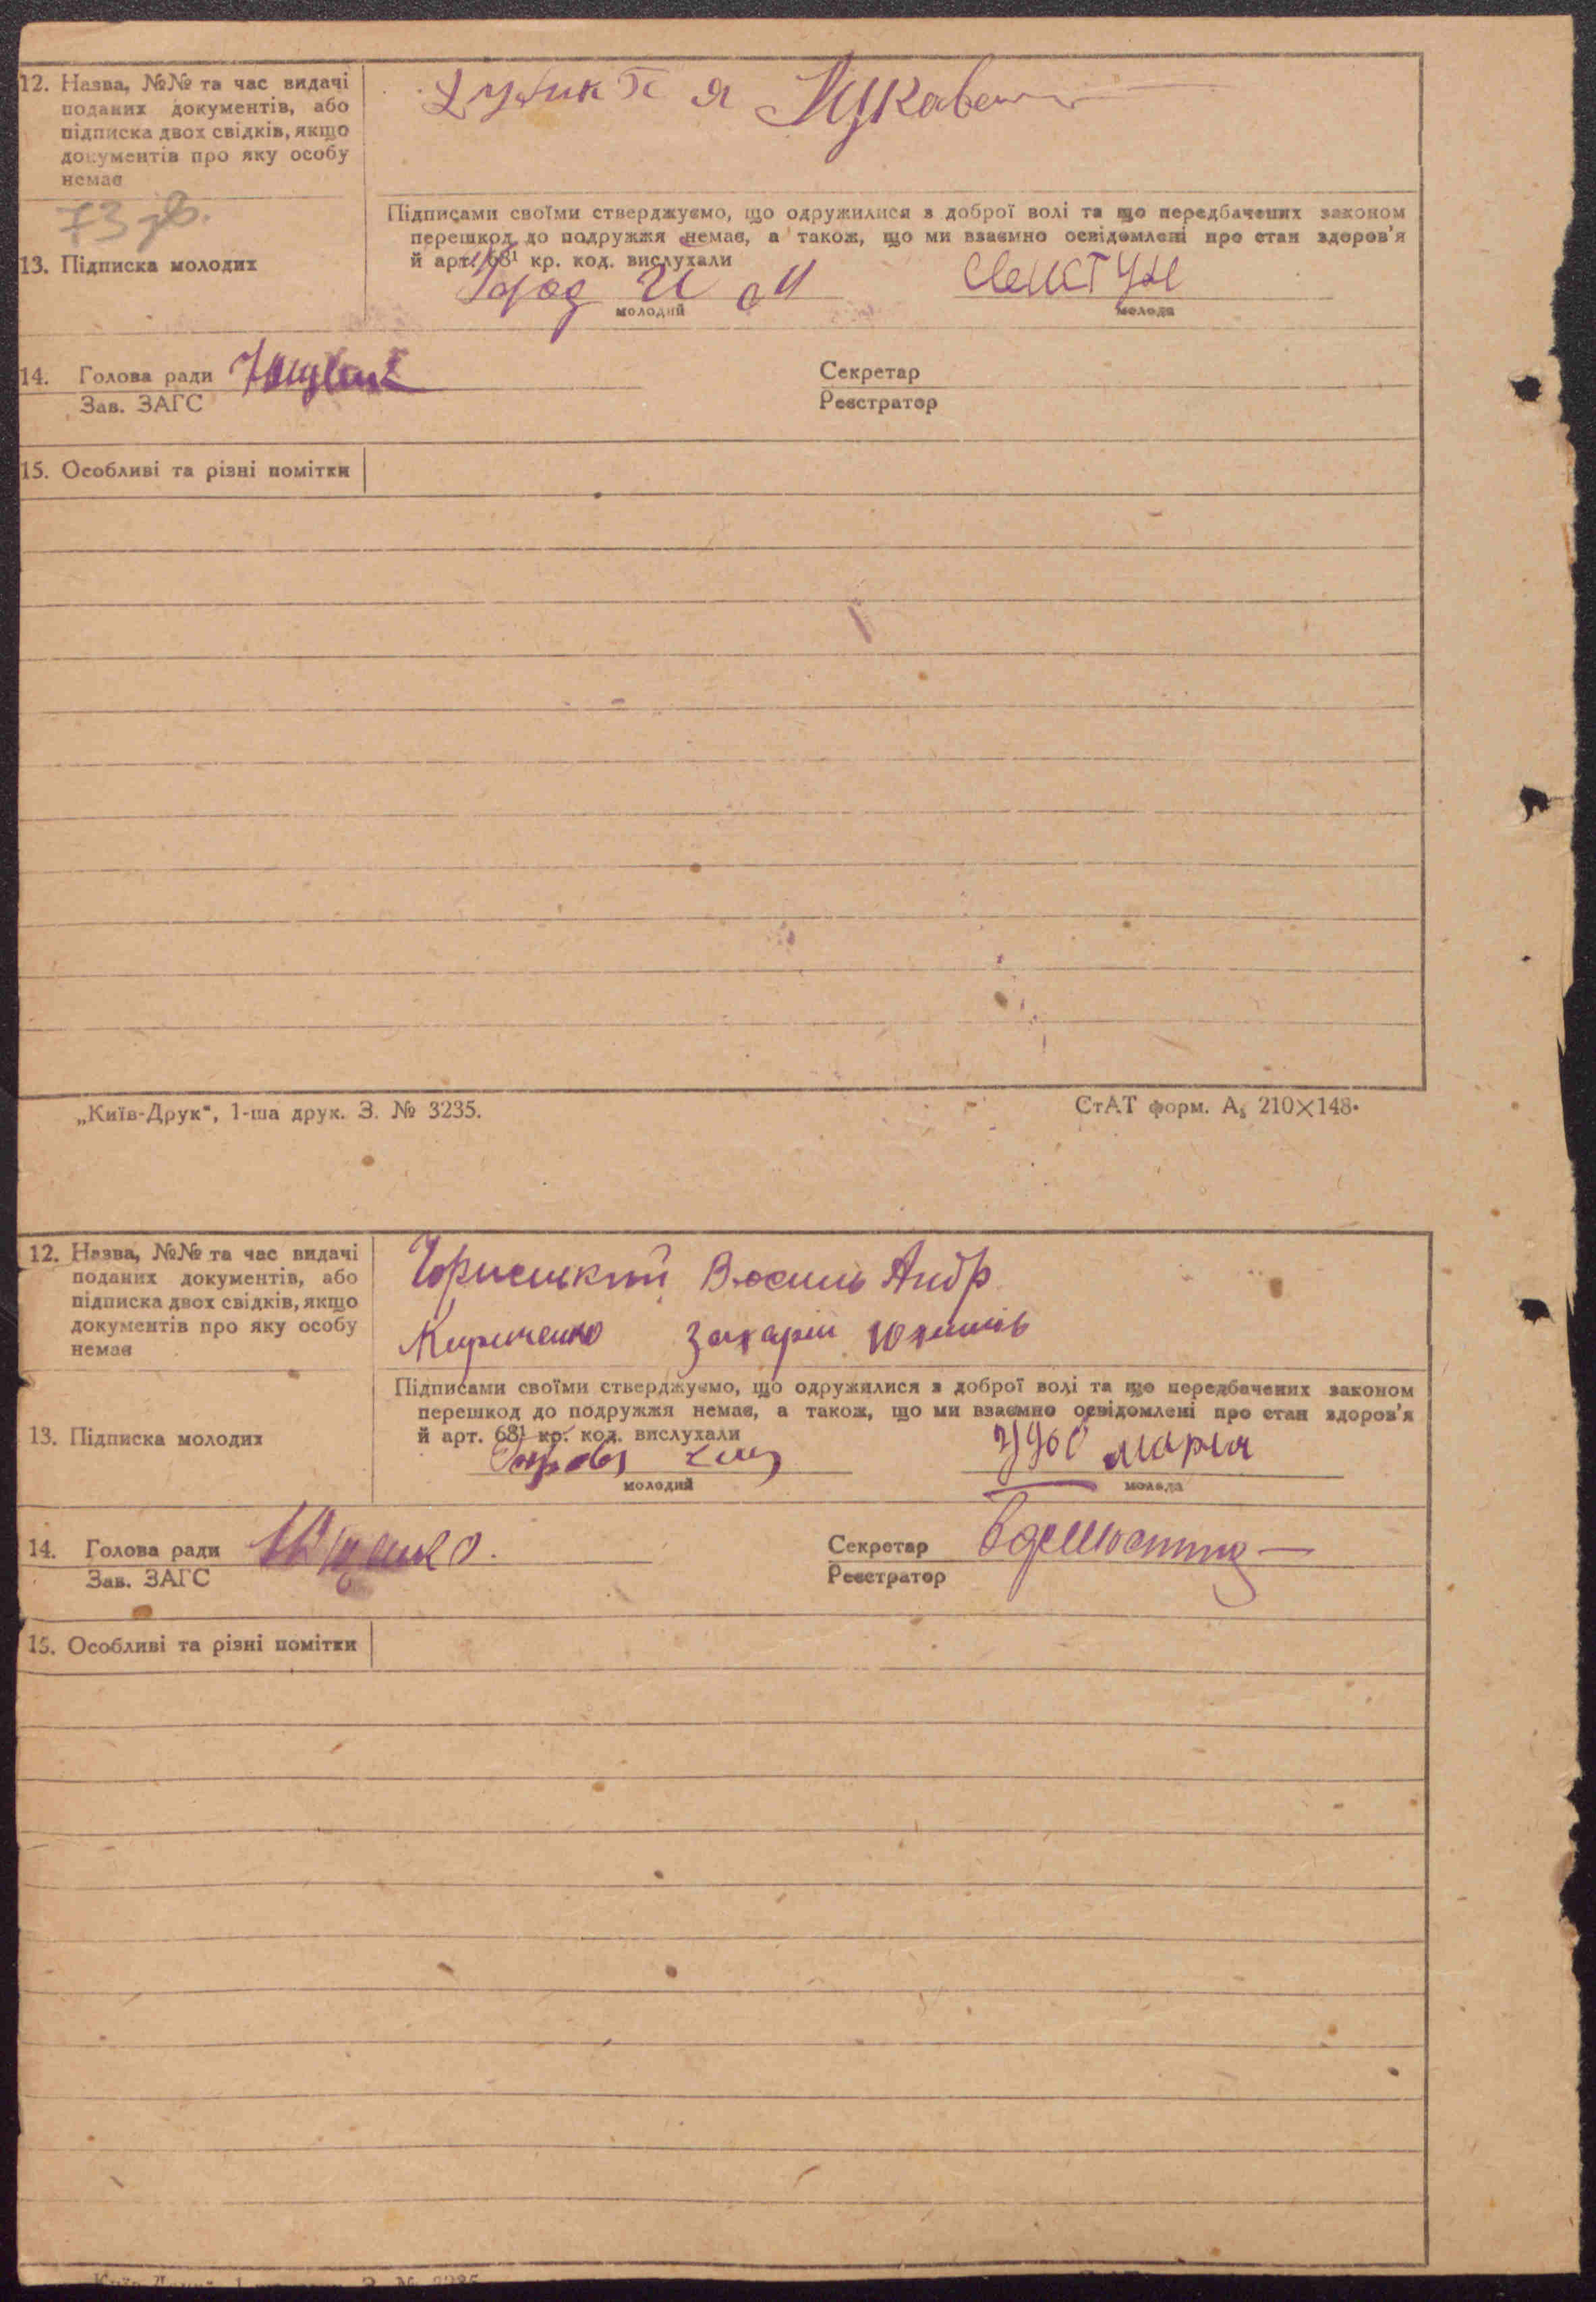 12. Назва, №№ та час видачі
поданих документів, або
підписка двох свідків, якщо
документів про яку особу
немає
73 зв.
Підписами своїми стверджуємо, що одружилися з доброї волі та що передбачених законом
перешкод до подружжя немає, а також, що ми взаємно освідомлені про стан здоров'я
й арт. 68¹ кр. код. вислухали
13. Підписка молодих
молодий
молода
14. Голова ради
Секретар
Зав. ЗАГС
Реєстратор
15. Особливі та різні помітки
„Київ-Друк“, 1-ша друк. З. № 3235.
СтАТ форм. А₅ 210×148.
12. Назва, №№ та час видачі
поданих документів, або
підписка двох свідків, якщо
документів про яку особу
немає
Андр
Кириченко Захарій
Підписами своїми стверджуємо, що одружилися з доброї волі та що передбачених законом
перешкод до подружжя немає, а також, що ми взаємно освідомлені про стан здоров'я
й арт. 68¹ кр. код. вислухали
13. Підписка молодих
мария
молодий
молода
14. Голова ради
Секретар
Зав. ЗАГС
Реєстратор
15. Особливі та різні помітки